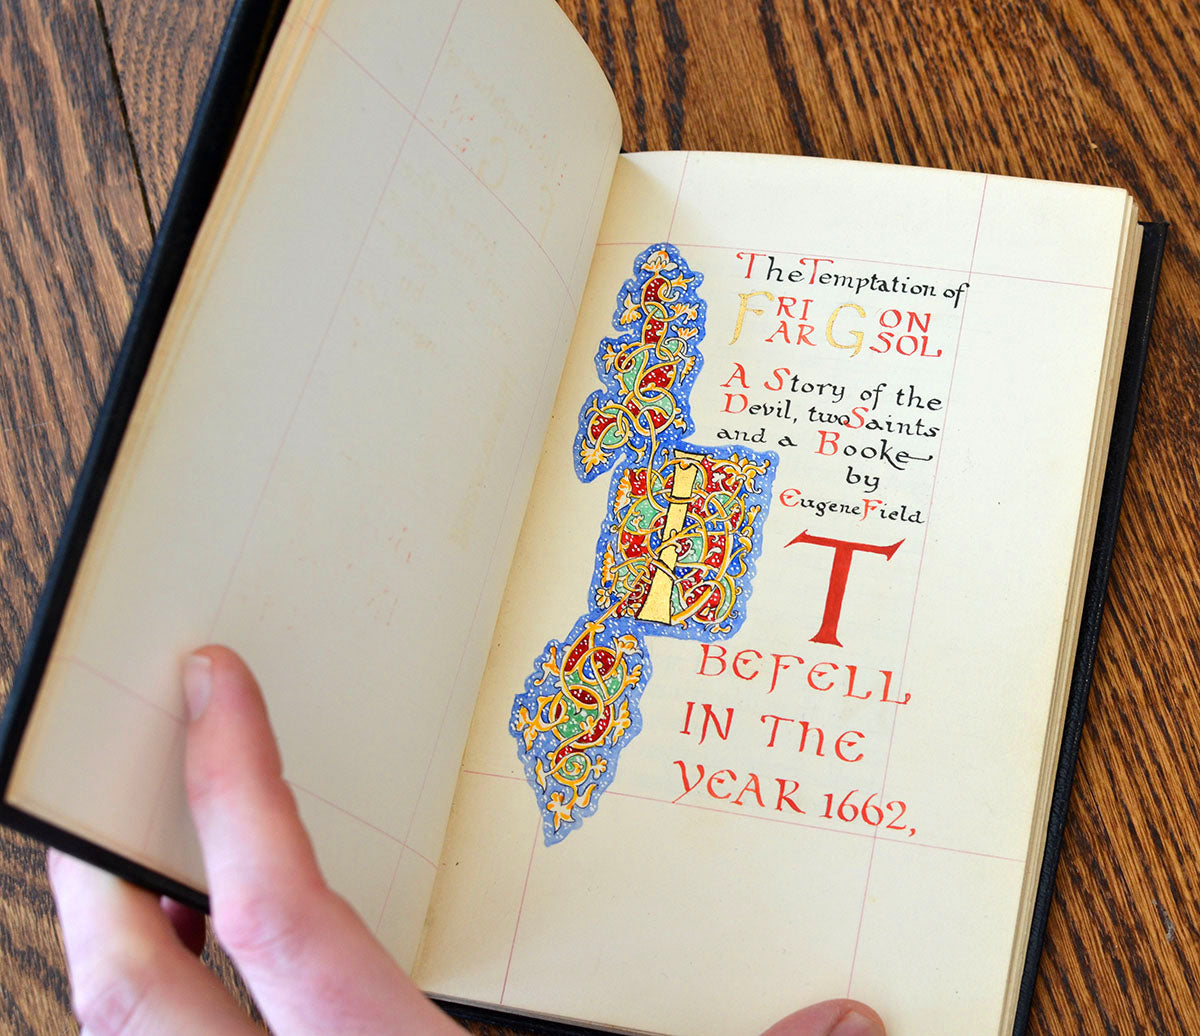 The Temptation of
FRIAR GONSOL
A Story of the
Devil, two Saints
and a Booke
by
Eugene Field
IT
BEFELL
IN THE
YEAR 1662,